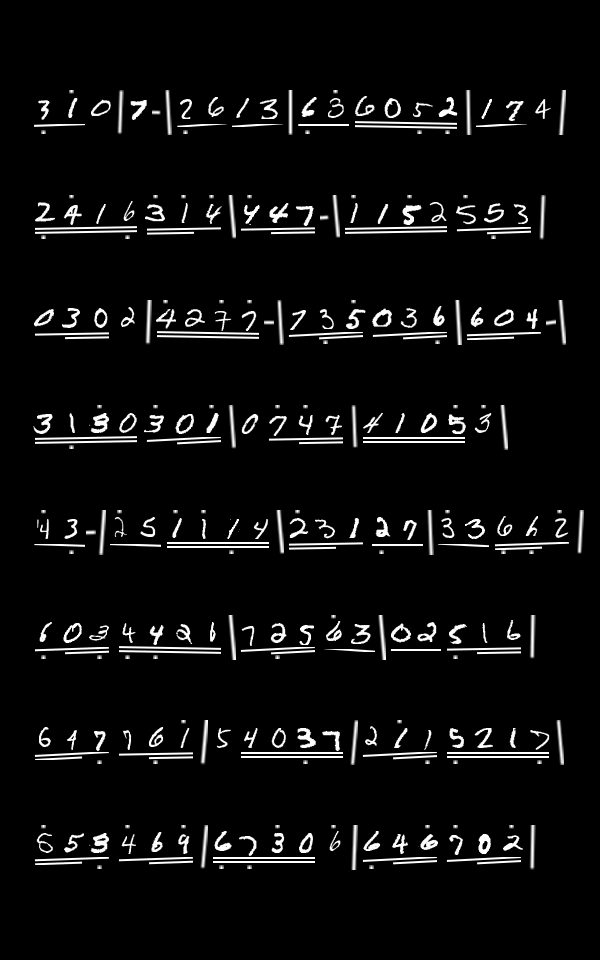 310|7-|2613|636052|174
2416314|447-|1152553
0302|4277-|7350366|604-|
3130301|0747|41053|
43-|251114|23127|33662|
6034421|72563|02516|
647761|54037|2115217|
553469|67306|646702|